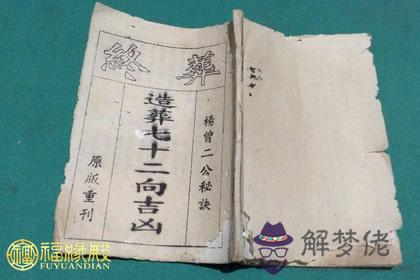 葬
楊曾二公秘訣
造葬七十二向吉凶
原版重刊
福緣殿
FUYUANDIAN
解梦佬